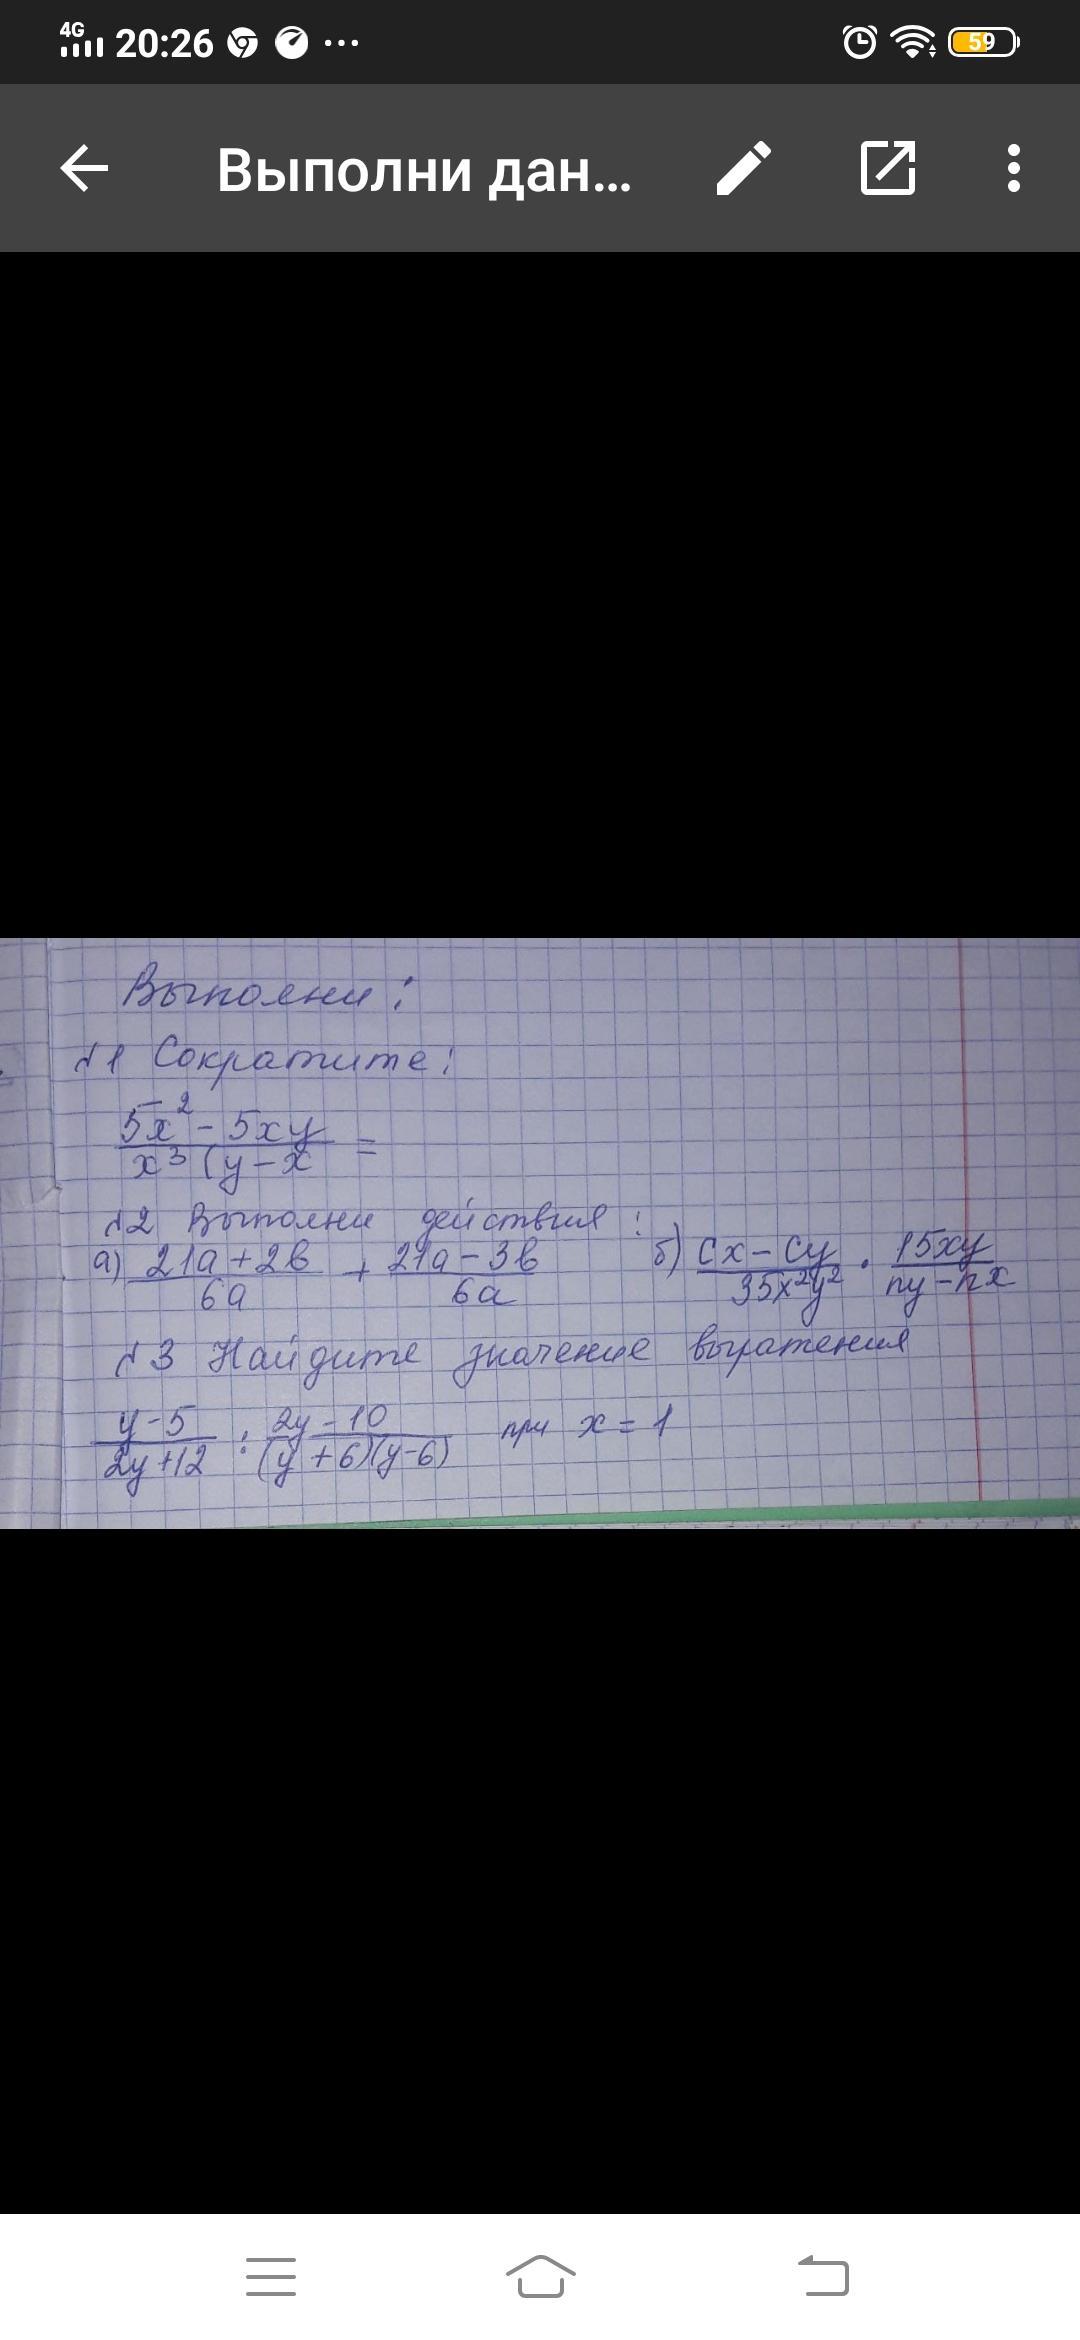 4G 20:26 59
Выполни дан...
Выполни:
№1 Сократите:
5x² - 5xy / x³ (y - x =
№2 Выполни действия:
а) 21a + 2b / 6a + 21a - 3b / 6a б) cx - cy / 35x²y² · 15xy / ny - nx
№3 Найдите значение выражения
y - 5 / 2y + 12 : 2y - 10 / (y + 6)(y - 6) при x = 1